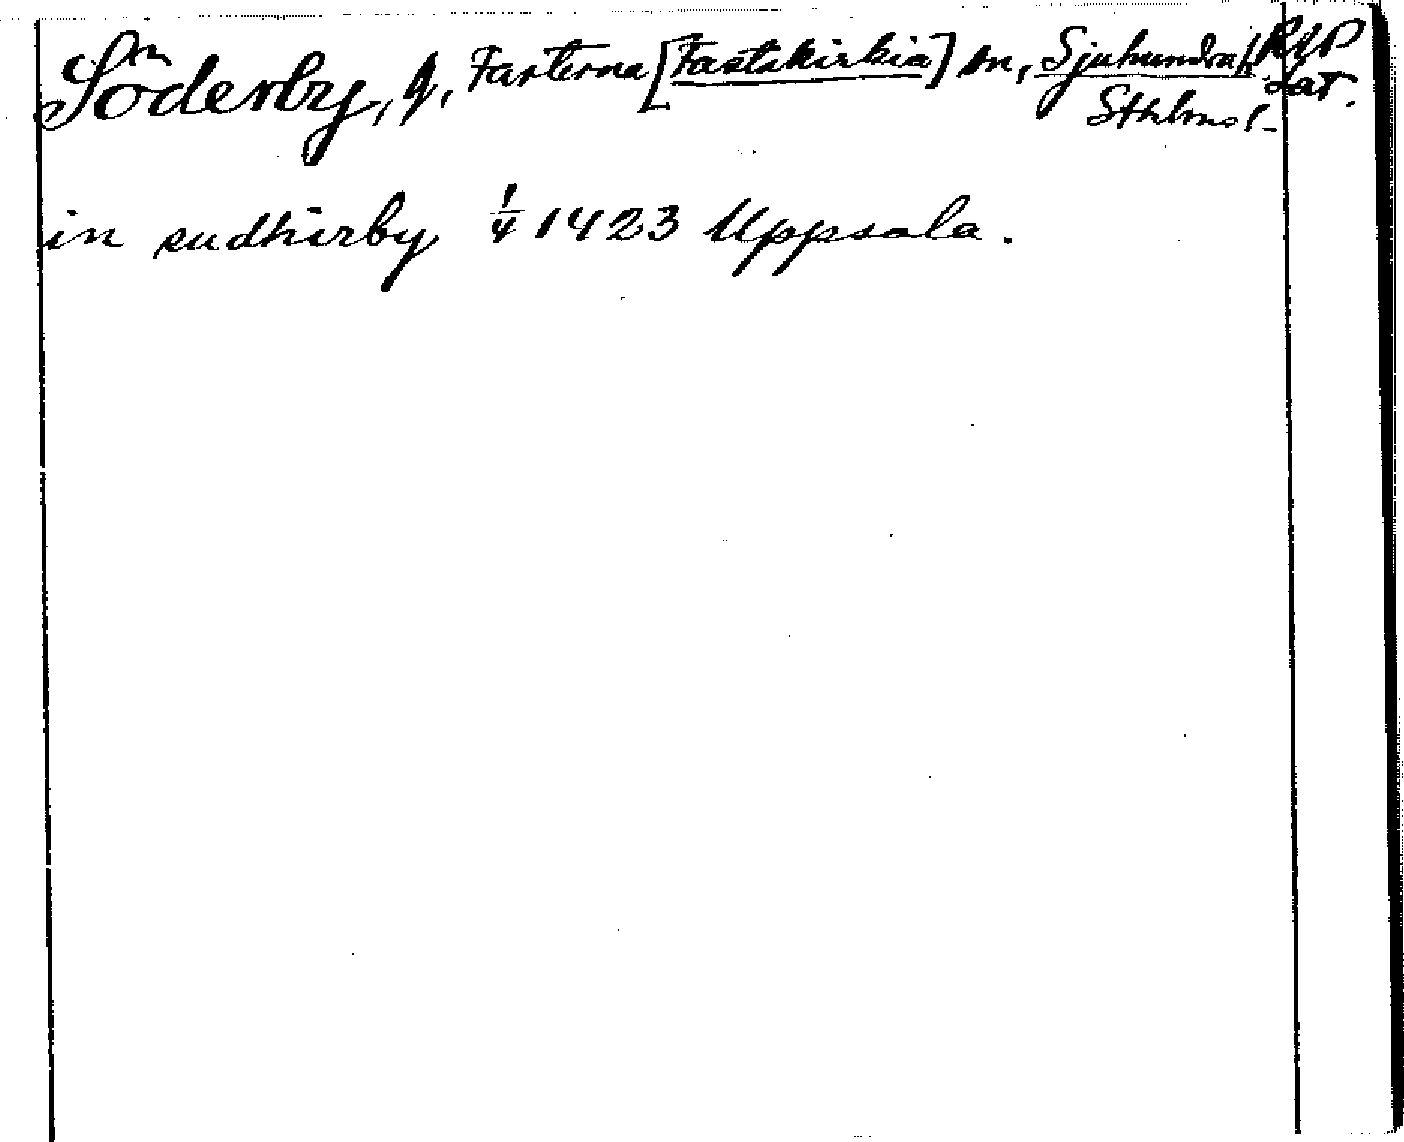 Söderby, g, Fasterna [Fastakirkia] sn, Sjuhundra h RAP
Sthlms l. Lat.
in sudhirby 1/4 1423 Uppsala.